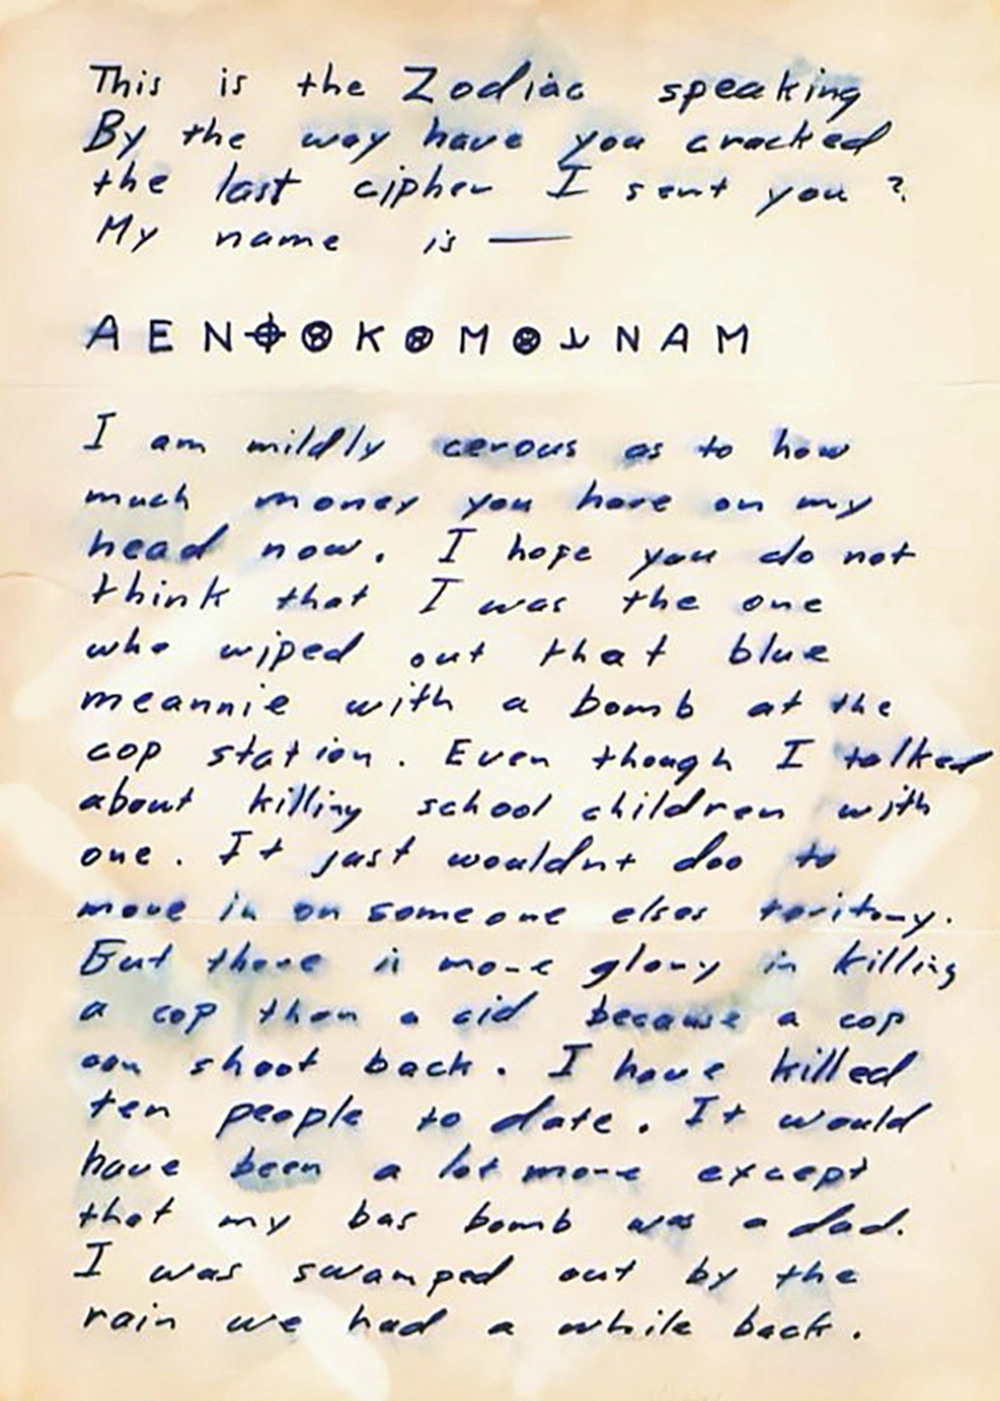 This is the Zodiac speaking
By the way have you cracked
the last cipher I sent you ?
My name is —
A E N ⌖ ⊗ K ⊗ M ⊗ ⅃ N A M
I am mildly cerous as to how
much money you have on my
head now. I hope you do not
think that I was the one
who wiped out that blue
meannie with a bomb at the
cop station. Even though I talked
about killing school children with
one. It just wouldnt doo to
move in on someone elses teritory.
But there is more glory in killing
a cop than a cid because a cop
can shoot back. I have killed
ten people to date. It would
have been a lot more except
that my bas bomb was a dad.
I was swamped out by the
rain we had a while back.